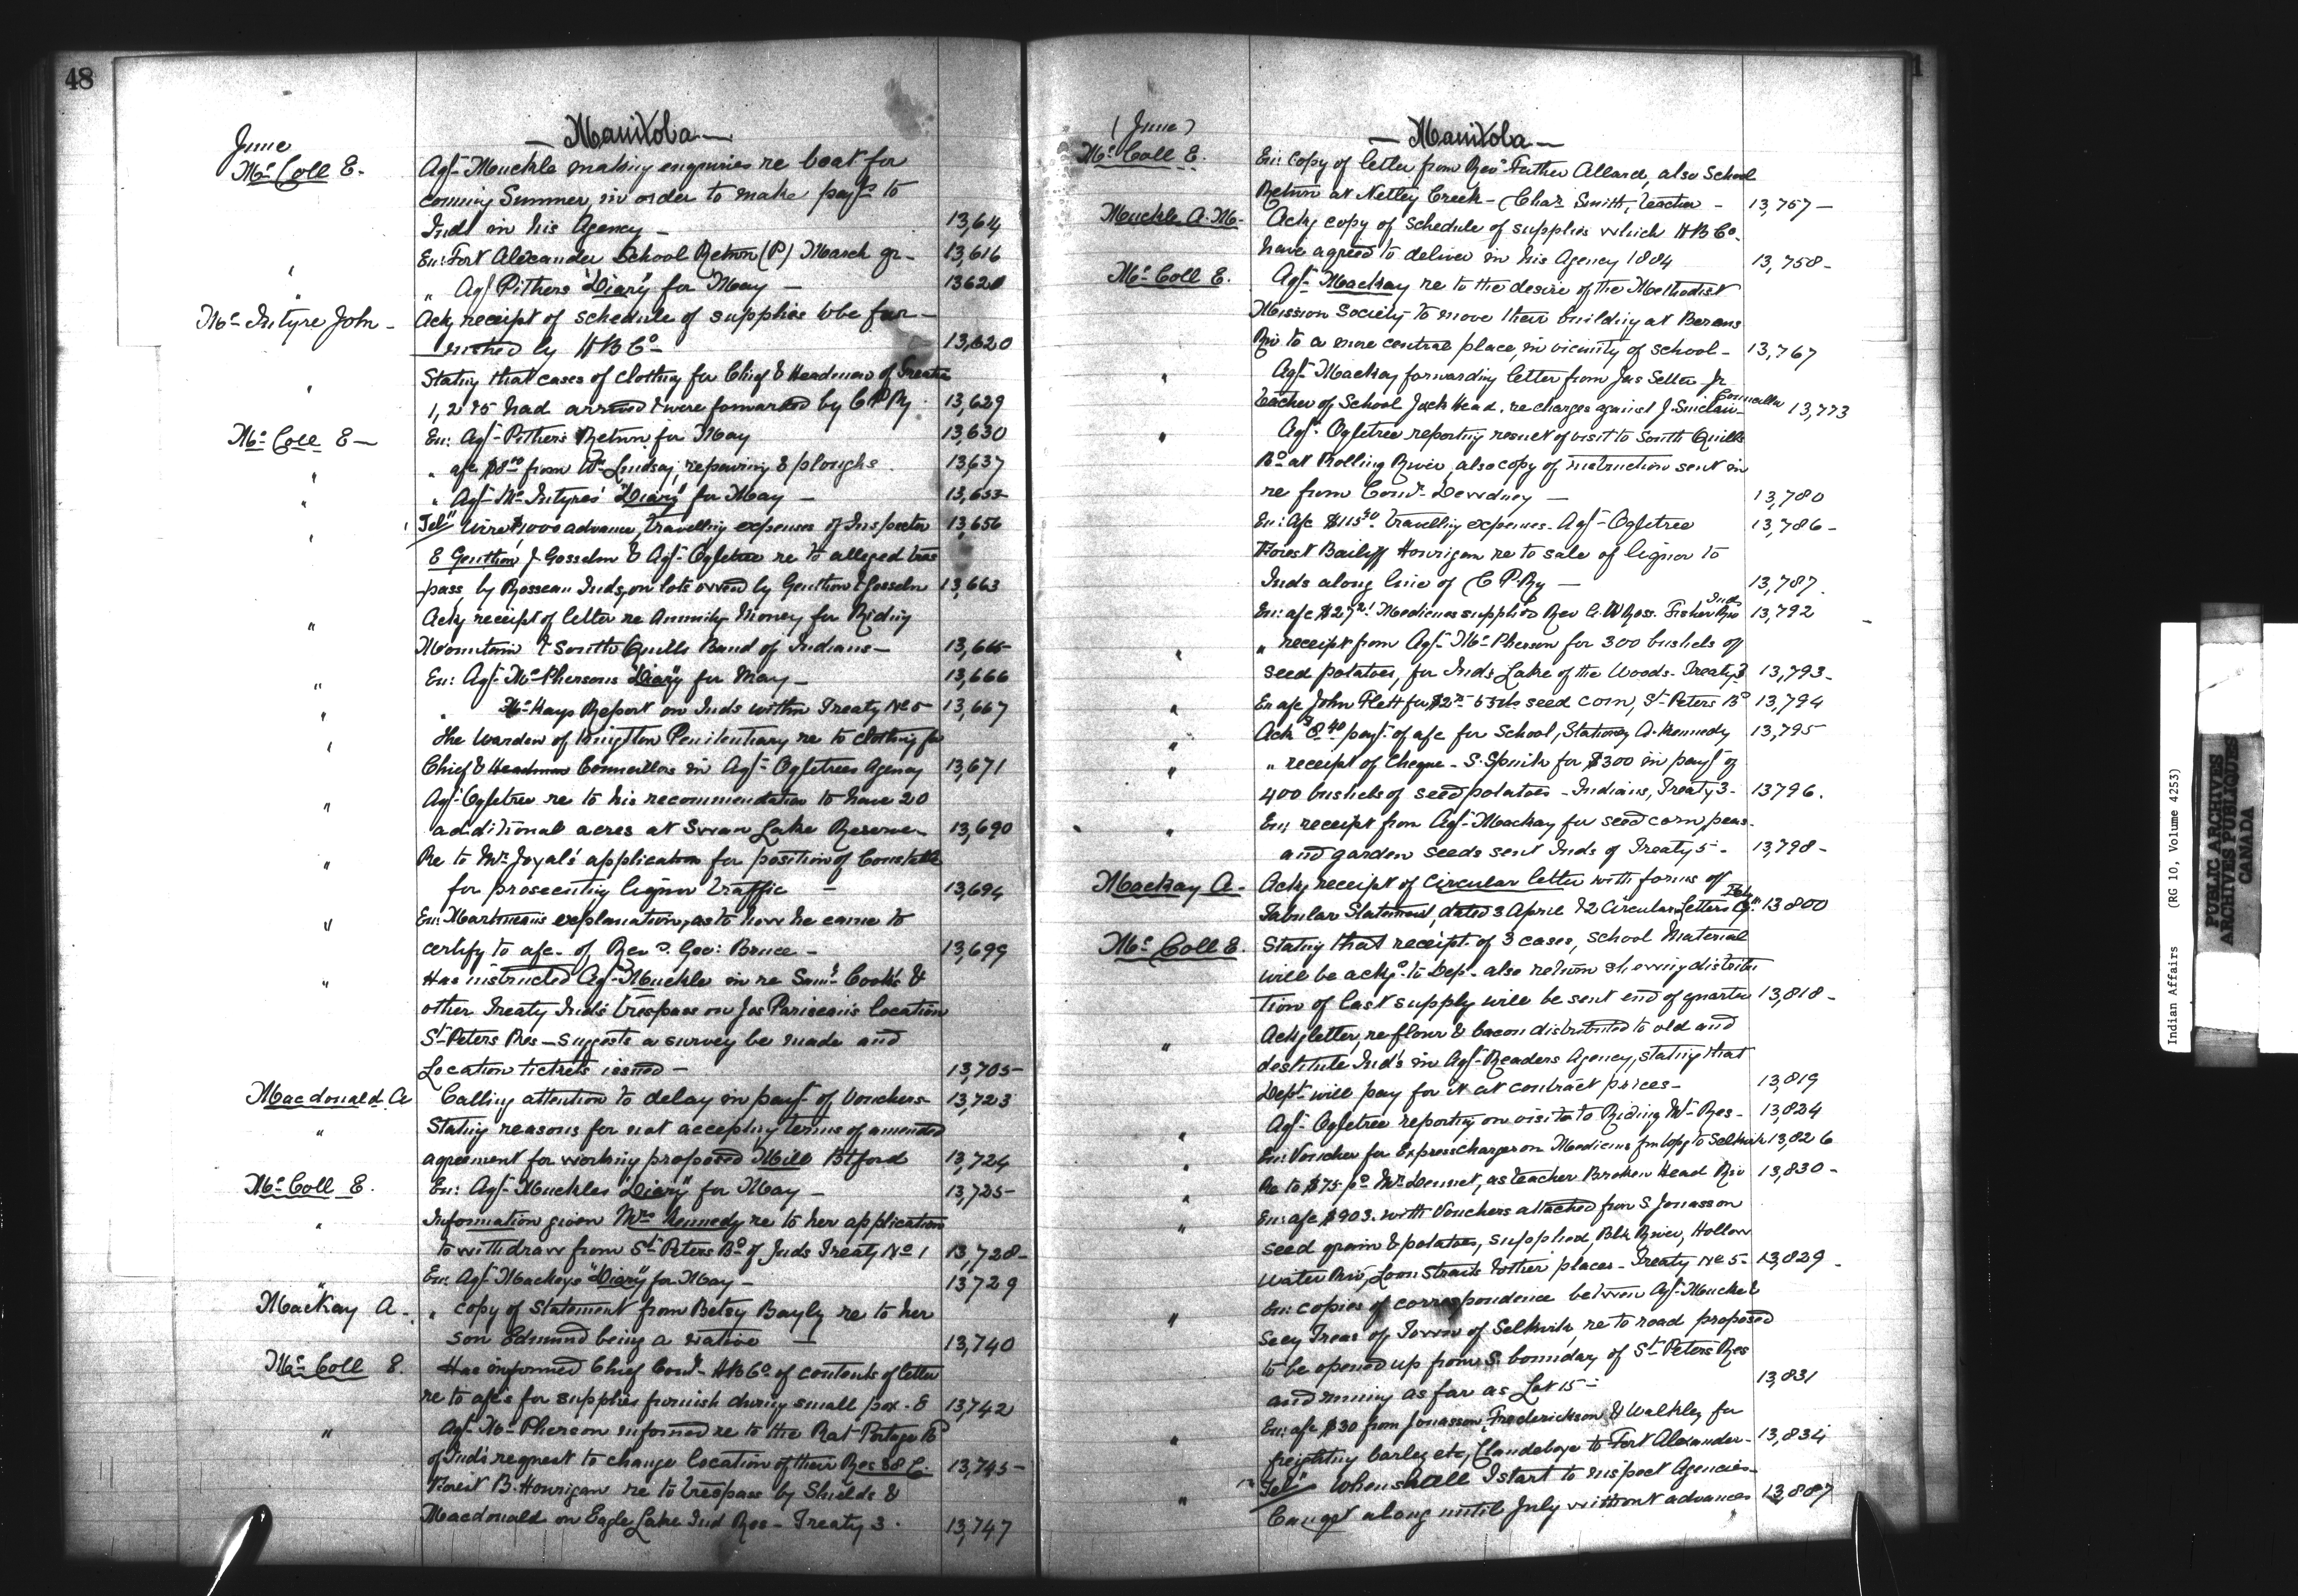 48
— Manitoba —
June
Mc Coll E.
Agt Muckle making enquiries re boat for
coming Summer, in order to make payt to
Inds in his Agency — 13,614
En: Fort Alexander School Return (P) March qr — 13,616
" Agt Pithers "Diary" for May — 13620
Mc Intyre John — Ack receipt of schedule of supplies to be fur-
nished by HBCo — 13,620
" Stating that cases of clothing for Chief & Headmen of Treaties
1, 2 & 5 had arrived & were forwarded by CPRy. 13,629
Mc Coll E — En: Agt Pithers Return for May 13,630
" " a/c $8.00 from Wm Lindsay, repairing 8 ploughs. 13,637
" " Agt Mc Intyres "Diary" for May — 13,655
" Tel" Wire $1000 advance, travelling expenses of Inspector 13,656
E Genthon J Gosselin & Agt Ogletree re to alleged tres
pass by Rosseau Inds, on lots owned by Genthon & Gosselin 13,663
" Ack receipt of letter re Annuity Money for Riding
Mountain & South Quills Band of Indians — 13,665
" En: Agt Mc Phersons "Diary" for May — 13,666
" " Mc Kays Report on Inds within Treaty No 5 — 13,667
" The Warden of Kingston Penitentiary re to clothing for
Chief & Headmen Councillors in Agt Ogletrees Agency 13,671
" Agt Ogletree re to his recommendation to have 20
additional acres at Swan Lake Reserve — 13,690
" Re to Mr Joyal's application for position of Constable
for prosecuting liquor traffic — 13,694
" En: Martineaus explanation, as to how he came to
certify to a/c of Revd Geo: Bruce — 13,699
" Has instructed Agt Muckle in re Saml Cook's &
other Treaty Inds trespass on Jos Pariseau's location
St Peters Res — Suggests a survey be made and
Location tickets issued — 13,705
Macdonald A Calling attention to delay in payt of Vouchers 13,723
" Stating reasons for not accepting terms of amended
agreement for working proposed Mill Btford 13,724
Mc Coll E. En: Agt Muckles "Diary" for May — 13,725
" Information given Mrs Kennedy re to her application
to withdraw from St Peters Bd of Inds Treaty No 1 13,728
" En: Agt Mackays "Diary" for May — 13729
MacKay A. " copy of Statement from Betsy Bayly re to her
son Edmund being a native — 13,740
Mc Coll E. Has informed Chief Comr HBCo of contents of letter
re to a/c's for supplies furnish during small pox. E 13,742
" Agt Mc Pherson informed re to the Rat Portage Bd
of Ind's request to change location of their Res 38 C. 13,745
Forest B. Hourigan re to trespass by Shields &
Macdonald on Eagle Lake Ind Res — Treaty 3. 13,747
1
(June)
— Manitoba —
Mc Coll E. En: Copy of letter from Revd Father Allard, also School
Return at Netley Creek — Chas Smith, teacher — 13,757 —
Muckle A. M. Ackg copy of schedule of supplies which HBCo.
have agreed to deliver in his Agency 1884 13,758 —
Mc Coll E. Agt Mackay re to the desire of the Methodist
Mission Society to move their building at Berens
Riv to a more central place, in vicinity of school — 13,767
" Agt Mackay forwarding letter from Jas Settee Jr
teacher of School Jack Head, re charges against J. Sinclair Councillor 13,773
" Agt Ogletree reporting result of visit to South Quills
Bd at Rolling River, also copy of instruction sent in
re from Comr Dewdney — 13,780
En: A/c $115.40 travelling expenses — Agt Ogletree 13,786 —
Forest Bailiff Hourigan re to sale of liquor to
Inds along line of CPRy — 13,787.
En: a/c $27.21 Medicines supplied Rev E. W Ross. Fisher Riv Inds 13,792
" " receipt from Agt Mc Pherson for 300 bushels of
seed potatoes, for Inds Lake of the Woods — Treaty 3 13,793 —
" En a/c John Flett for $2.75 55 lbs seed corn, St Peters Bd 13,794
" Ack $8.40 payt of a/c for School, Stationery A. Kennedy 13,795
" " receipt of Cheque — S. Spink for $300 in payt of
400 bushels of seed potatoes — Indians, Treaty 3 — 13796.
" En: receipt from Agt Mackay for seed corn, peas
and garden seeds sent Inds of Treaty 5 — 13,798 —
Mackay A — Ackg receipt of Circular letter with forms of
Tabular Statement, dated 3 April & 2 Circular Letters 13800
Mc Coll E. Stating that receipt of 3 cases, School Material
will be ackgd to Dept — also return showing distribu
tion of last supply will be sent end of quarter 13,818 —
" Ack letter, re flour & bacon distributed to old and
destitute Inds in Agt Readers Agency, stating that
Dept will pay for it at contract prices — 13,819
" Agt Ogletree reporting on visit to Riding Mt Res — 13,824
" En: Voucher for Express charges on Medicine fm Wpg to Selkirk 13,826
" Re to $75 pd Mr Dennet, as teacher Broken Head Riv 13,830 —
" En: a/c $903. with Vouchers attached from S Jonasson
seed grain & potatoes, supplied, Blk River, Hollow
Water Riv, Loon Straits & other places — Treaty No 5 — 13,829 —
" En: copies of correspondence between Agt Muckle &
Secy Treas of Town of Selkirk, re to road proposed
to be opened up from S. boundary of St Peters Res
and running as far as Lot 15 — 13,831
" En: a/c $30 from Jonasson, Frederickson & Walkley for
freighting barley etc, Clandeboye to Fort Alexander — 13,834
" Tel" When shall I start to inspect Agencies —
Can get along until July without advances 13,887
Indian Affairs (RG 10, Volume 4253)
PUBLIC ARCHIVES
ARCHIVES PUBLIQUES
CANADA